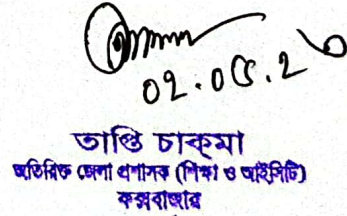 02.05.26
তাপ্তি চাক্‌মা
অতিরিক্ত জেলা প্রশাসক (শিক্ষা ও আইসিটি)
কক্সবাজার